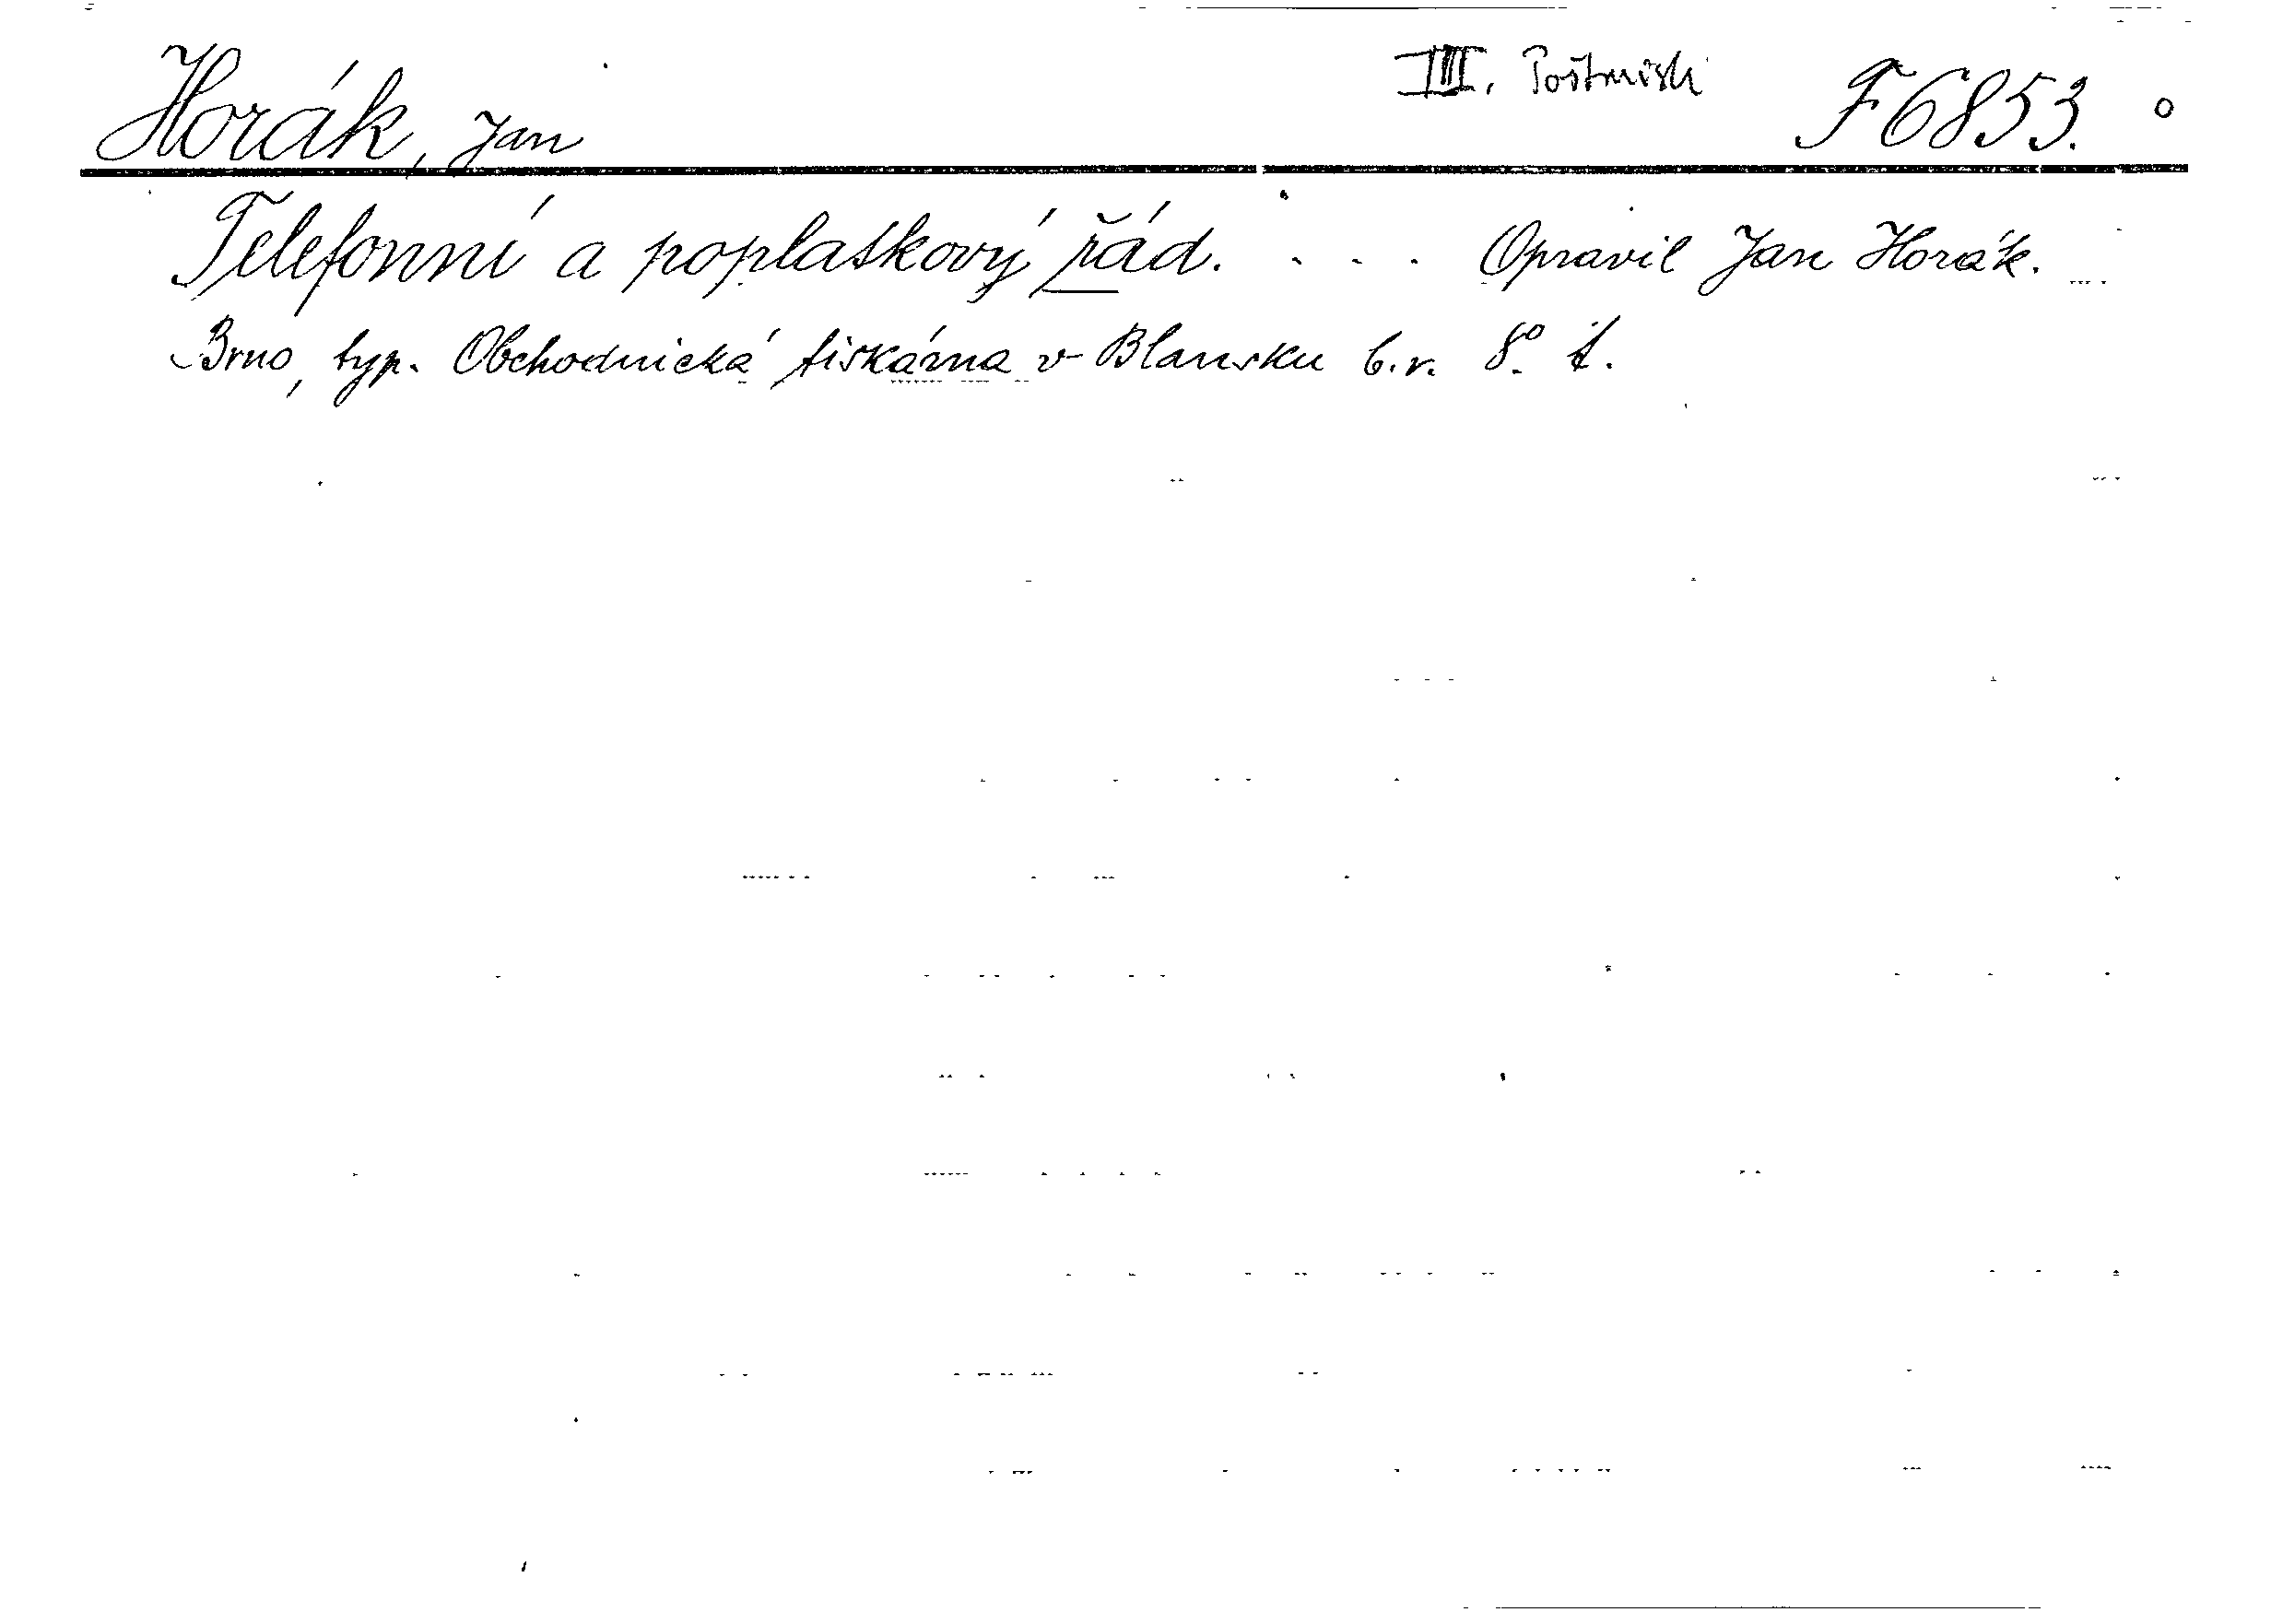 Horák, Jan III. Poštovnictví F 6853.
Telefonní a poplatkový řád. . . . Opravil Jan Horák.
Brno, typ. Obchodnická tiskárna v Blansku b.r. 8° č.